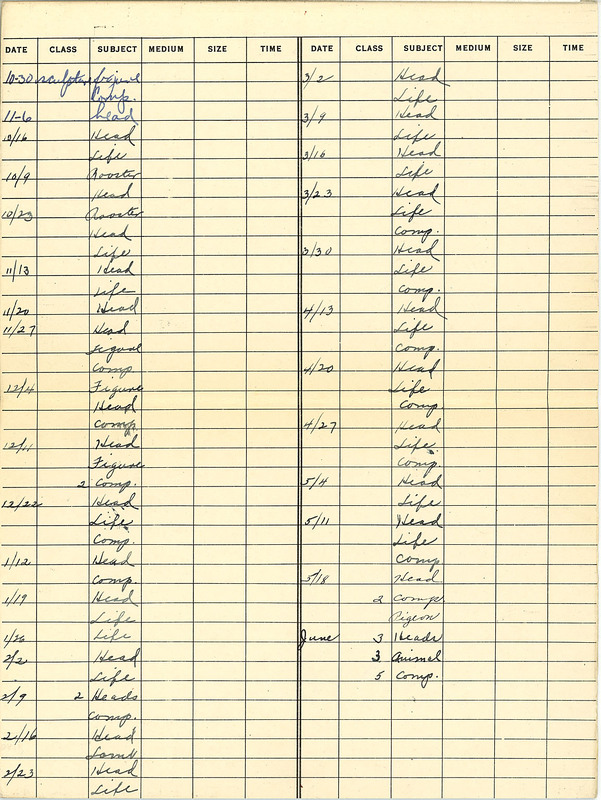 DATE CLASS SUBJECT MEDIUM SIZE TIME
10-30 sculpture figure
Comp.
11-6 head
10/16 Head
Life
10/9 Rooster
Head
10/23 Rooster
Head
Life
11/13 Head
Life
11/20 Head
11/27 Head
Figure
Comp
12/4 Figure
Head
Comp.
12/11 Head
Figure
2 Comp.
12/22 Head
Life
Comp.
1/12 Head
Comp.
1/19 Head
Life
1/26 Life
2/2 Head
Life
2/9 2 Heads
Comp.
2/16 Head
2/23 Head
Life
DATE CLASS SUBJECT MEDIUM SIZE TIME
3/2 Head
Life
3/9 Head
Life
3/16 Head
Life
3/23 Head
Life
Comp.
3/30 Head
Life
Comp.
4/13 Head
Life
Comp.
4/20 Head
Life
Comp.
4/27 Head
Life
Comp.
5/4 Head
Life
5/11 Head
Life
Comp
5/18 Head
2 Comps
Pigeon
June 3 Heads
3 Animal
5 Comp.